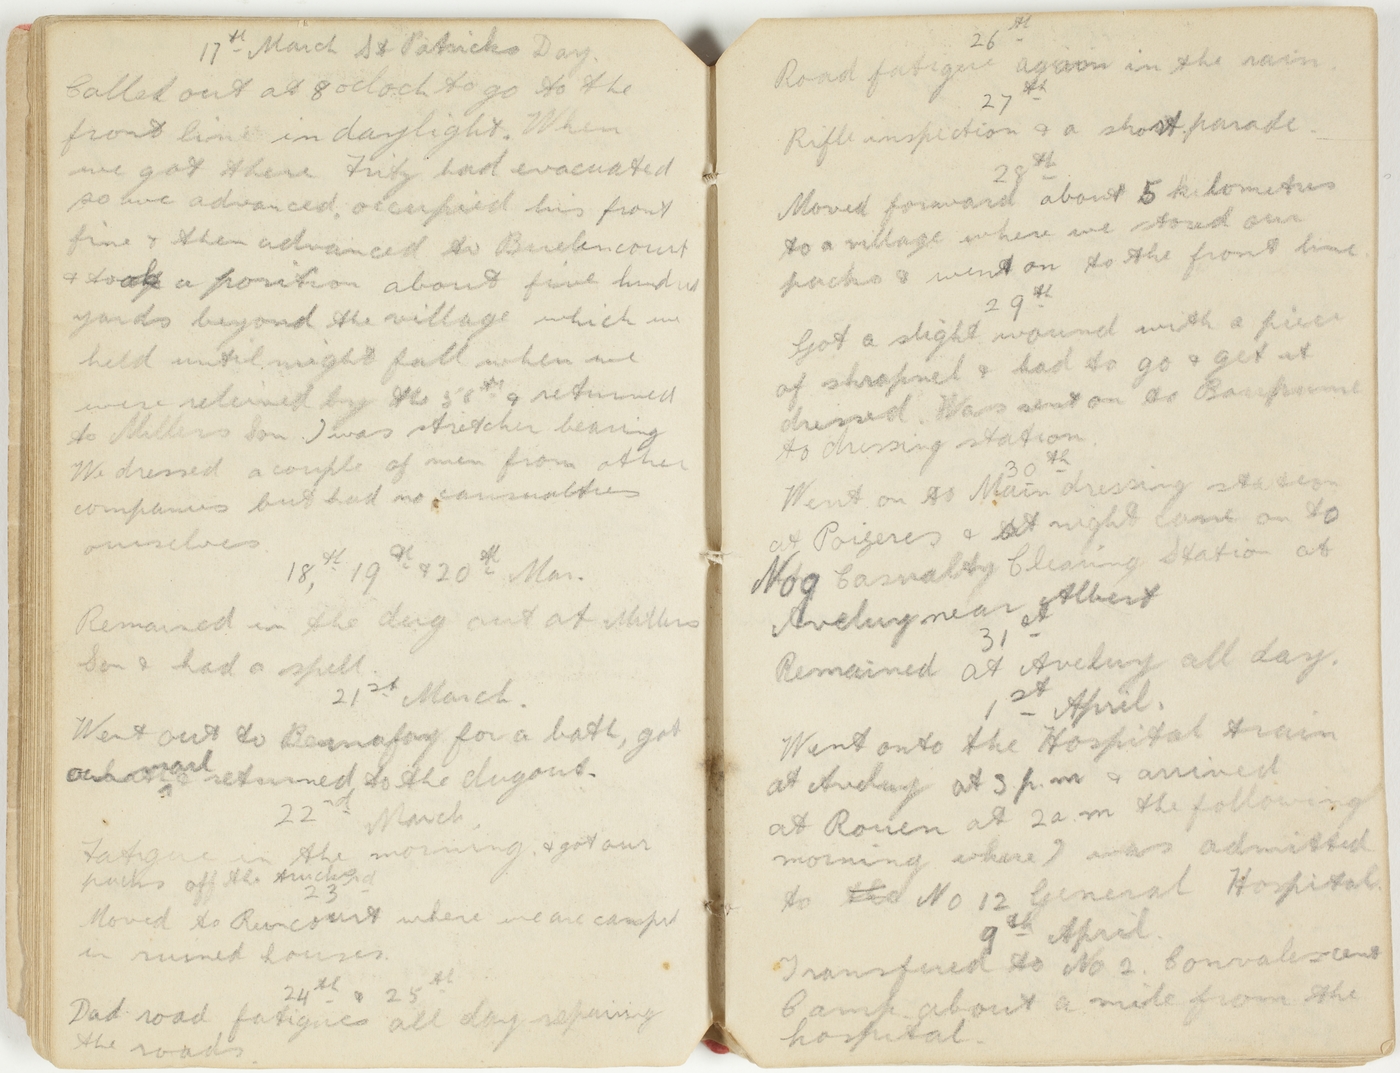 17th March St Patricks Day.
Called out at 8 oclock to go to the
front line in daylight. When
we got there Fritz had evacuated
so we advanced, occupied his front
line & then advanced to Buelencourt
& took a position about five hundred
yards beyond the village which we
held until night fall when we
were releived by the 58th & returned
to Millers Son. I was stretcher bearing
We dressed a couple of men from other
companies but had no causualties
ourselves.
18th, 19th & 20th Mar.
Remained in the dug out at Millers
Son & had a spell.
21st March.
Went out to Bernafay for a bath, got
our mail & returned to the dugout.
22nd March.
Fatigue in the morning & got our
packs off the trucks
23rd
Moved to Rencourt where we are campt
in ruined houses.
24th & 25th
Dad road fatigues all day repairing
the roads.
26th
Road fatigue again in the rain.
27th
Rifle inspection & a short parade.
28th
Moved forward about 5 kilometres
to a village where we stored our
packs & went on to the front line.
29th
Got a slight wound with a piece
of shrapnel & had to go & get it
dressed. Was sent on to Baupaume
to dressing station.
30th
Went on to Main dressing station
at Poizeres & at night came on to
No 9 Casualty Clearing Station at
Aveluy near Albert
31st
Remained at Aveluy all day.
1st April.
Went onto the Hospital train
at Aveluy at 3 p.m & arrived
at Rouen at 2 a.m the following
morning where I was admitted
to the No 12 General Hospital.
9th April.
Transfured to No 2. Convalescent
Camp about a mile from the
hospital.